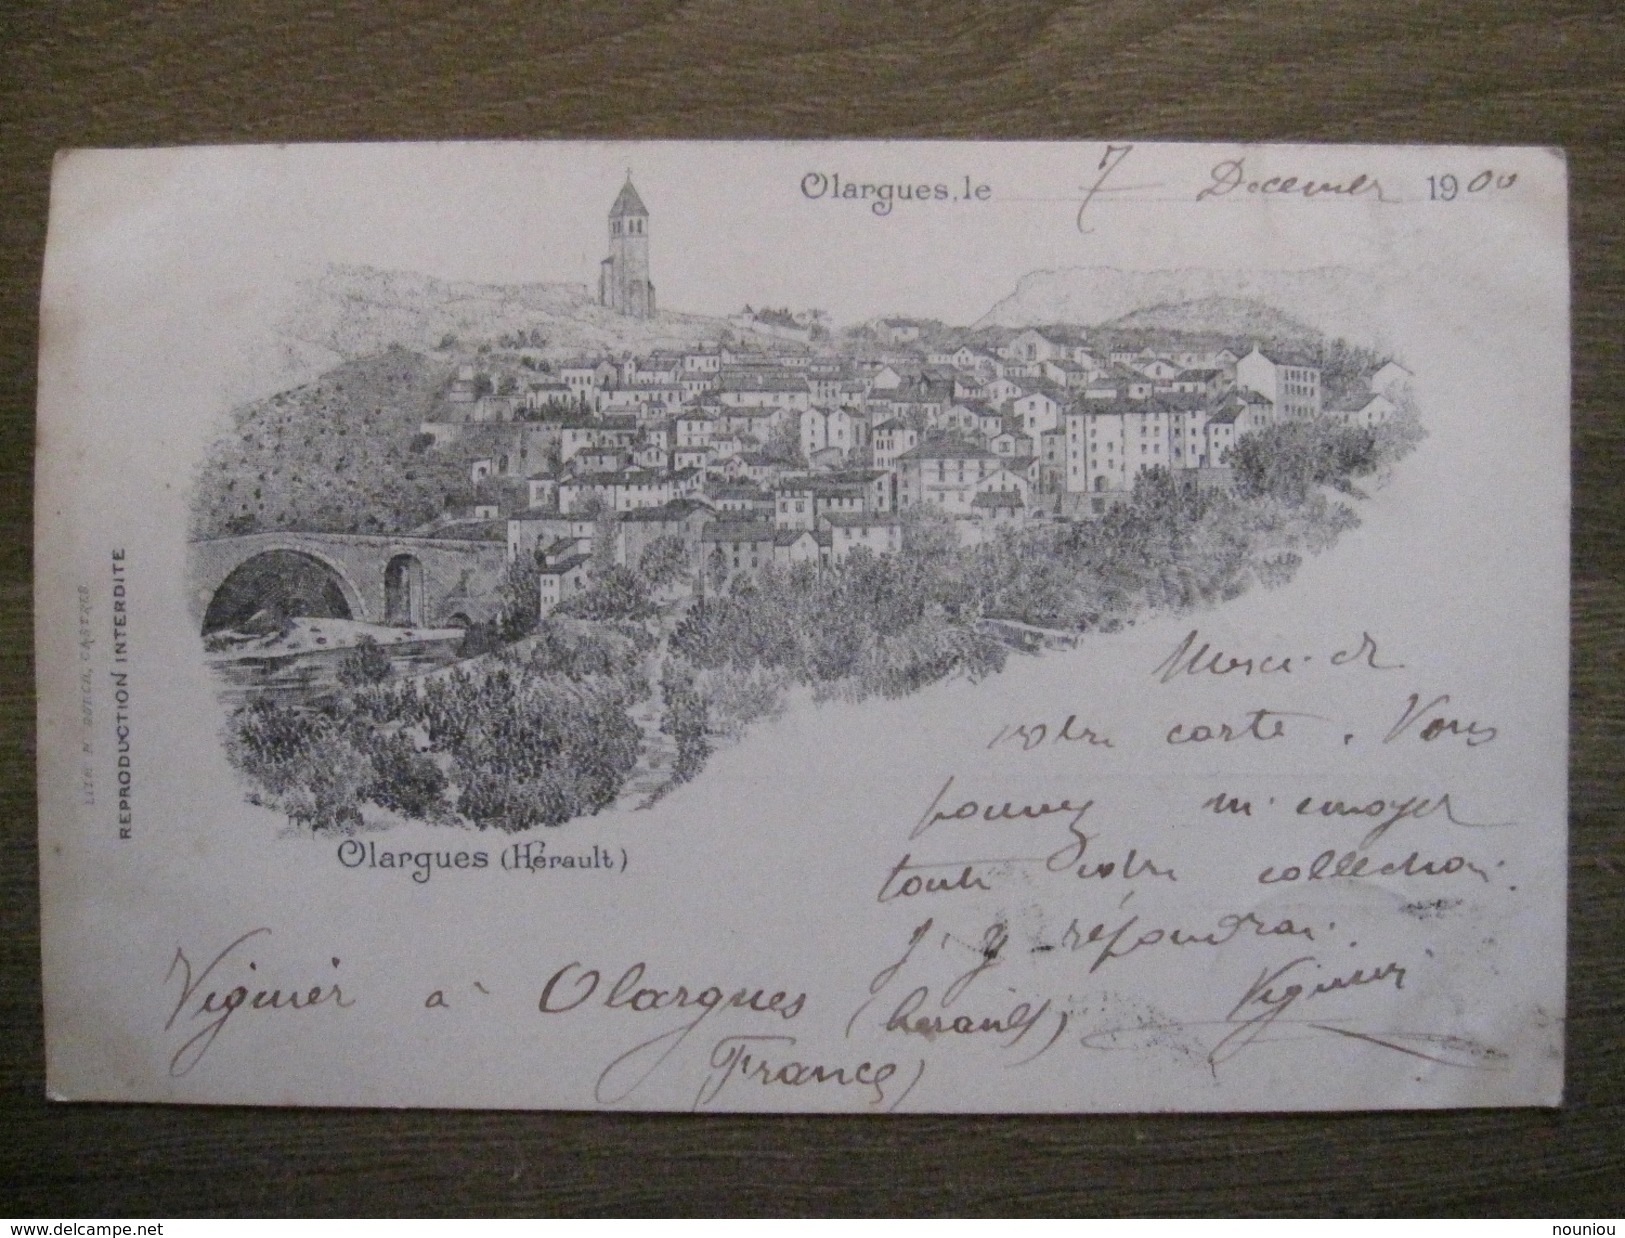 Olargues, le 7 Decembr 1900
Merci de
votre carte. Vous
pouvez m'envoyer
toute votre collection.
J'y répondrai.
Viguier
Olargues (Hérault)
Viguier à Olargues (herault)
France)
REPRODUCTION INTERDITE
CASTRES
www.delcampe.net
nouniou